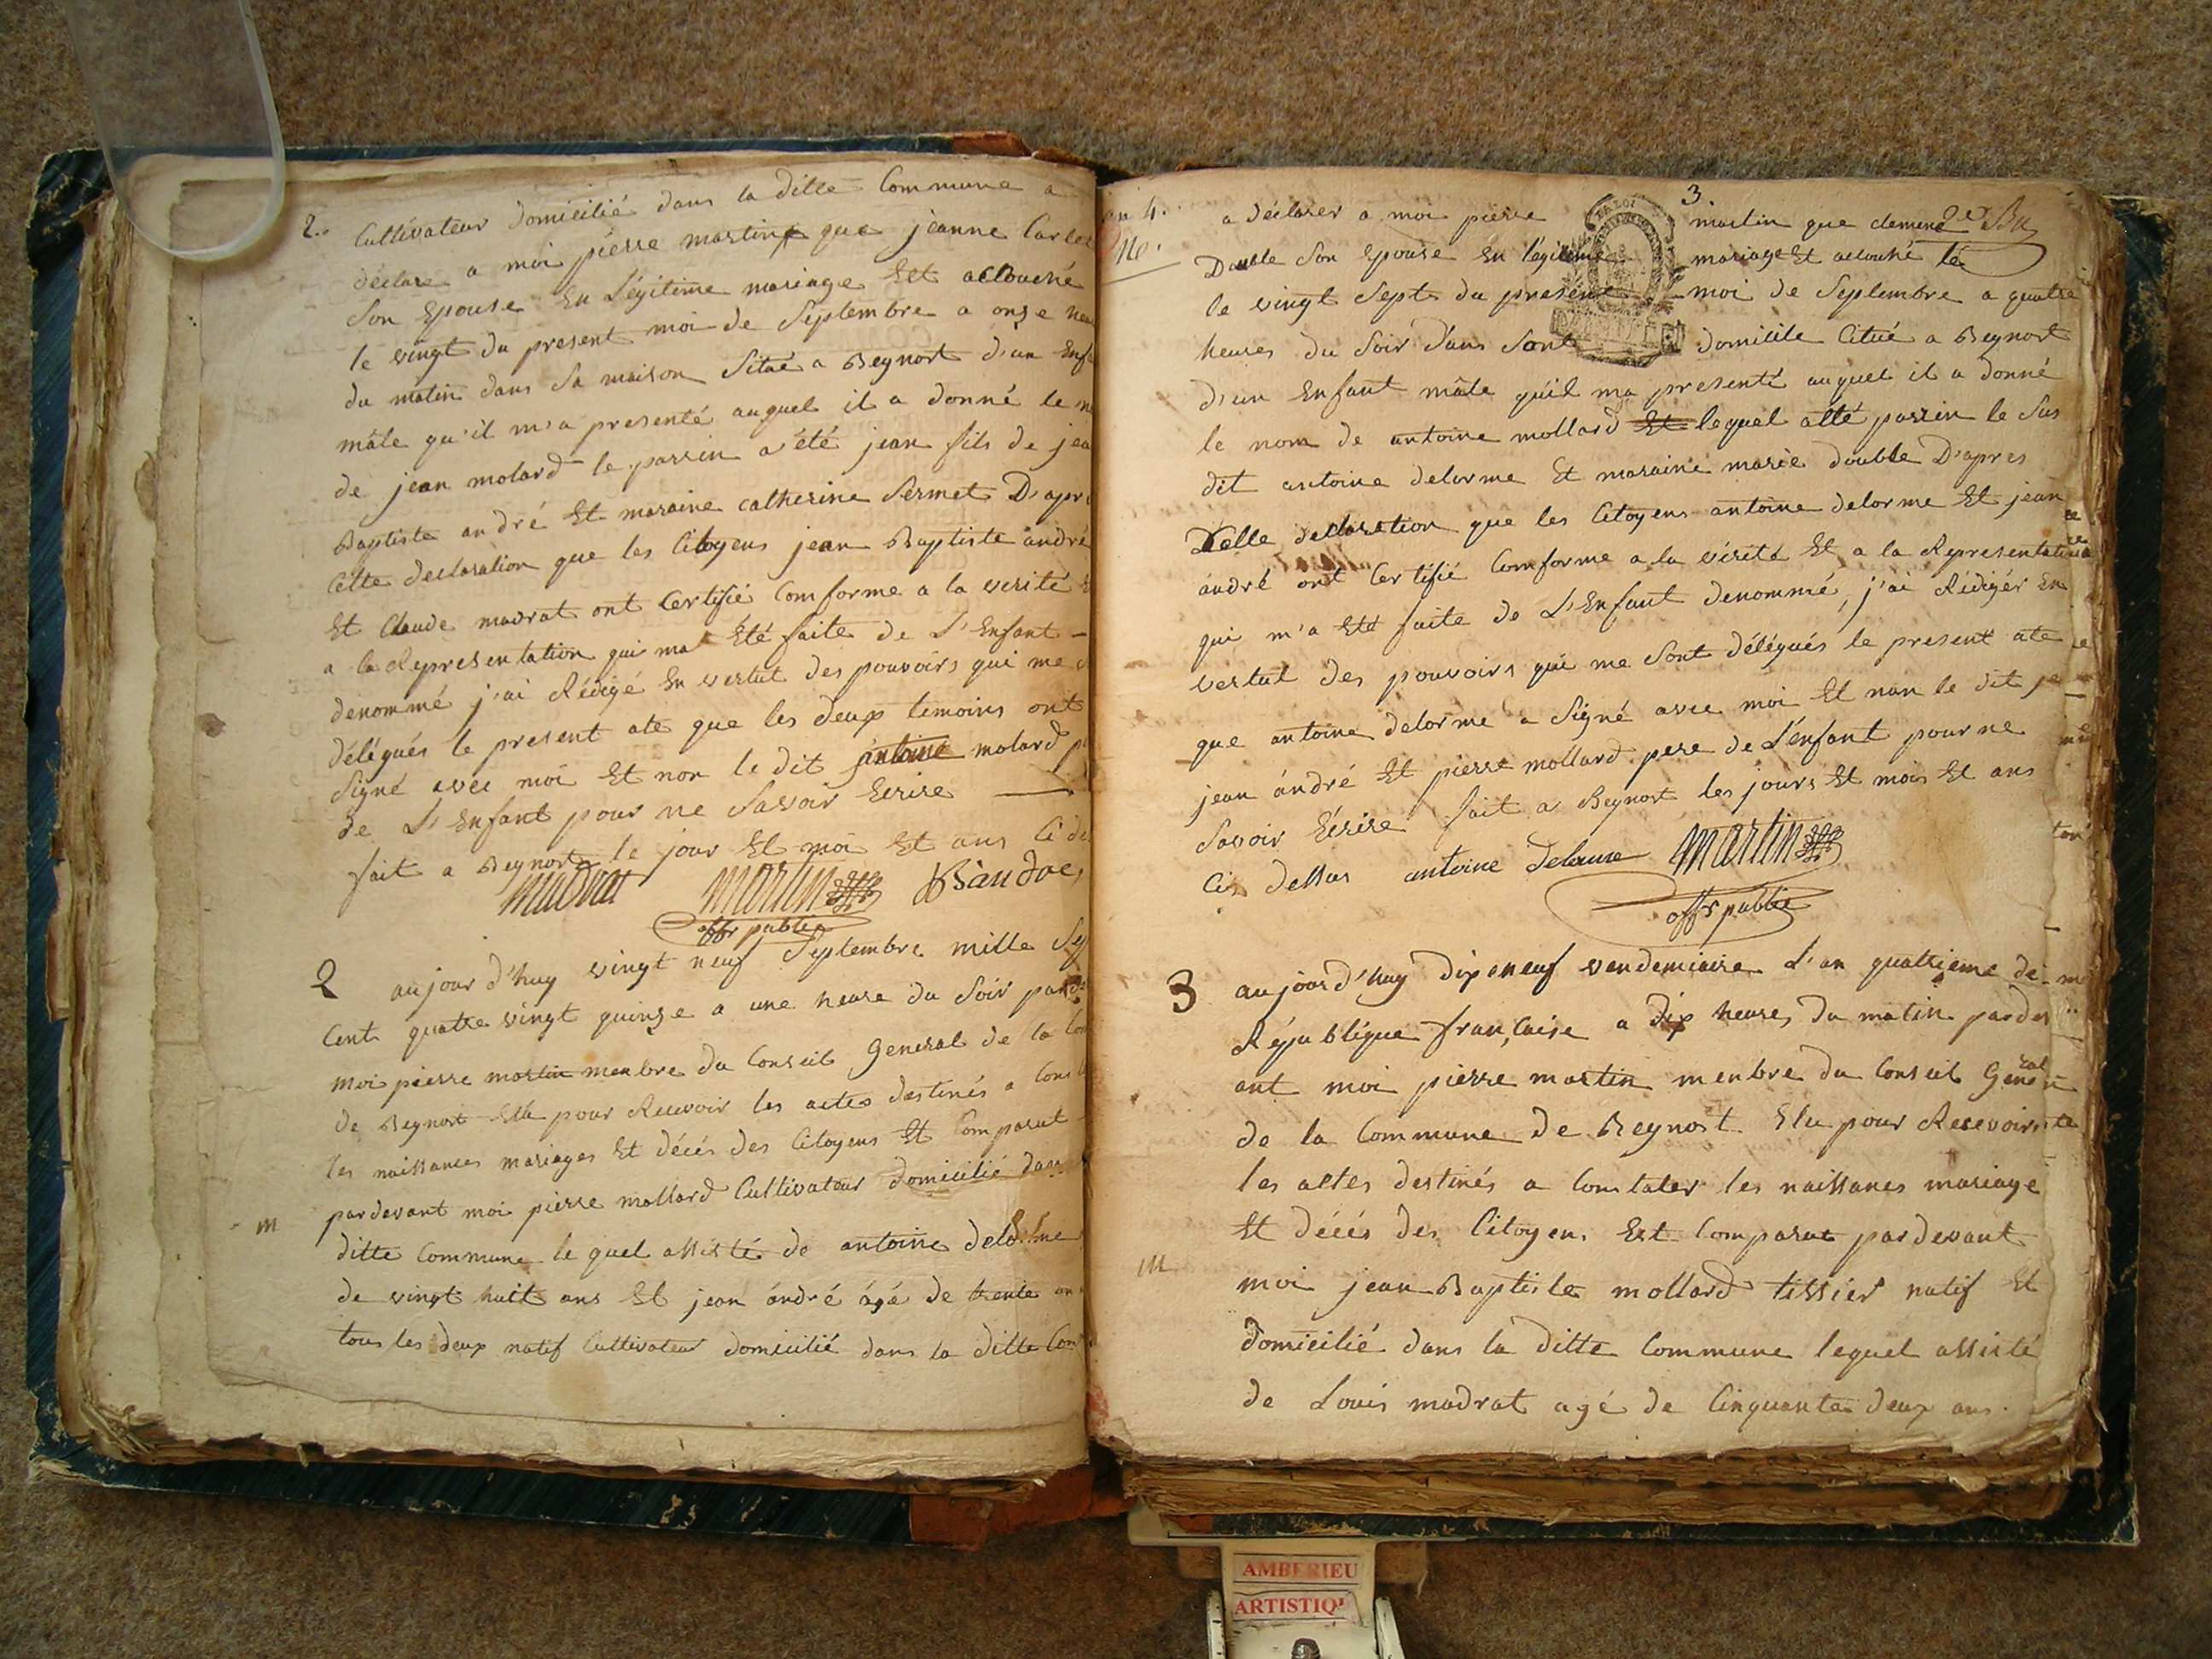 2.. Cultivateur domicilié dans la ditte Commune a
déclare a moi pierre martin que jeanne
Son Epouse En Légitime mariage Est accouché
le vingt du present moi de Septembre a onze
du matin dans Sa maison Situé a Beynost d'un
mâle qu'il m'a presenté auquel il a donné le
de jean molard le parrin a été jean fils de
Baptiste andré Et maraine catherine Sermet D'apr
Cette declaration que les Citoyens jean Baptiste andré
Et Claude madrat ont Certifié Comforme a la verité
a la Representation qui ma Eté faite de L'Enfant
denommé j'ai Rédigé En vertut des pouvoirs qui me
délégués le present ate que les deux temoins ont
Signé avec moi Et non le dit antoine molard
de L'Enfant pour ne Savoir Ecrire
fait a Beynost le jour Et moi Et ans Ci de
madrat martin
offr public
2 aujour d'huy vingt neuf Septembre mille Sep
Cent quatre vingt quinze a une heure du Soir
moi pierre martin menbre du Conseil General de la Com
de Beynost Elu pour Recevoir les actes destinés a Cons
les naissances mariages Et décés des Citoyens Et Comparut
pardevant moi pierre mollard Cultivateur domicilié dans
m ditte Commune le quel assisté de antoine delorme
de vingt huit ans Et jean ándré ágé de trente ans
tous les deux natif Cultivateur domicilié dans la ditte Com
an 4. 3.
a déclarer a moi pierre martin que
Double Son Epouse En légitime mariage Et accouché le
le vingt Sept du present moi de Septembre a quatre
heures du Soir dans Sont domicile Citué a Beynost
d'un Enfant mâle qu'il ma presenté auquel il a donné
le nom de antoine mollard Et lequel atté parrin le Sus
dit antoine delorme Et maraine marie double D'apres
declaration que les Citoyens antoine delorme Et jean
ándré ont Certifié Comforme a la vérité Et a la Representation
qui m'a Eté faite de L'Enfant denommé, j'ai Rédigér En
vertut des pouvoirs qui me Sont délégués le present ate
que antoine delorme a Signé avec moi Et non le dit
jean ándré Et pierre mollard pere de L'énfant pour ne
Savoir Ecrire fait a Beynost les jours Et mois Et ans
Ci dessus antoine Delorme martin
offr public
3 aujourd'huy dix neuf vendemiaire L'an quatrieme de
République francaise a dix heures du matin pardev
ant moi pierre martin menbre du Conseil General
de la Commune de Beynost Elu pour Recevoir
les actes destinés a Constater les naissances mariage
Et décés des Citoyens Est Comparut pardevant
m moi jean Baptiste mollard tissier natif Et
domicilié dans la ditte Commune lequel assisté
de Louis madrat agé de Cinquante deux ans.
AMBERIEU
ARTISTIQ